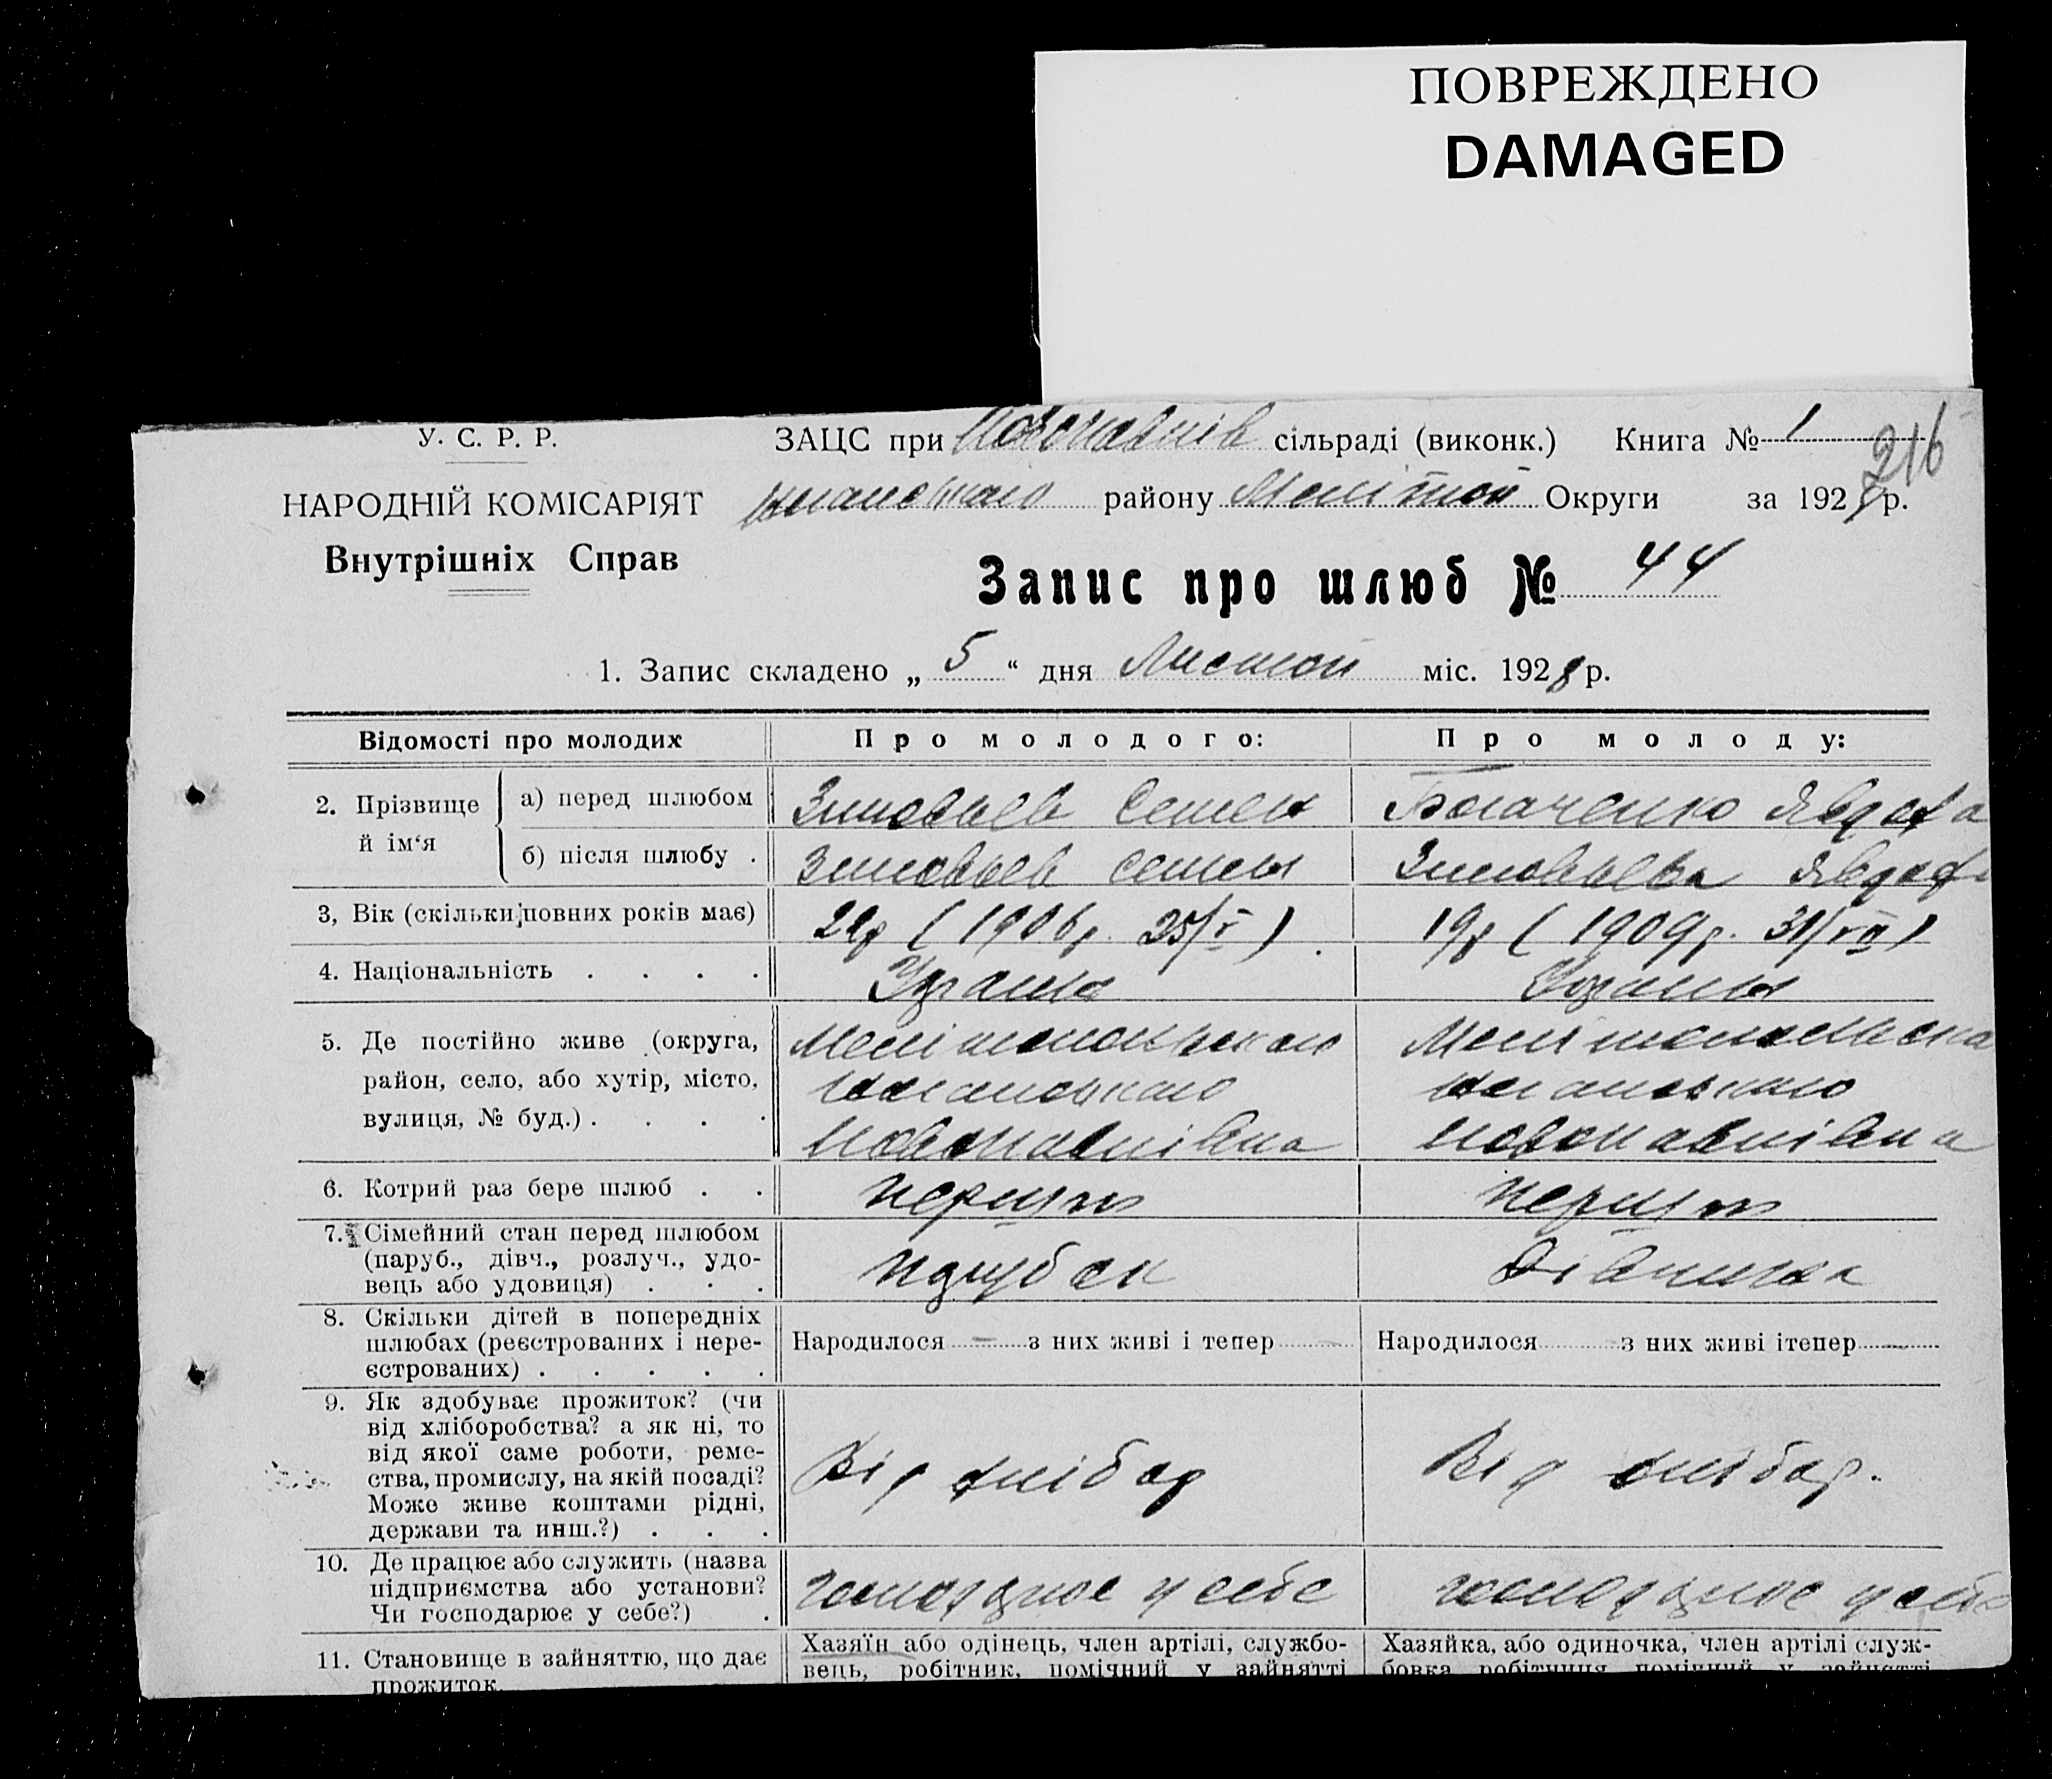 ПОВРЕЖДЕНО
DAMAGED
У. С. Р. Р.
ЗАЦС при Новопавлів сільраді (виконк.) Книга № 1
216
НАРОДНІЙ КОМІСАРІЯТ
району Мелітоп Округи за 1928 р.
Внутрішніх Справ
Запис про шлюб № 44
1. Запис складено „ 5 “ дня Листоп міс. 1928 р.
Відомості про молодих
Про молодого:
Про молоду:
2. Прізвище й ім‘я
а) перед шлюбом
Зиновьев Семен
Богаченко Явдоха
б) після шлюбу .
Зиновьев Семен
Зиновьева Явдох
3, Вік (скільки повних років має)
22р (1906р. 25/V)
19р (1909р. 31/VII)
4. Національність . . . .
5. Де постійно живе (округа,
район, село, або хутір, місто,
вулиця, № буд.) . . . .
Новопавлівка
Новопавлівка
6. Котрий раз бере шлюб . .
перший
перший
7. Сімейний стан перед шлюбом
(паруб., дівч., розлуч., удо-
вець або удовиця) . . .
парубок
дівчина
8. Скільки дітей в попередніх
шлюбах (реєстрованих і нере-
єстрованих) . . . . .
Народилося — з них живі і тепер —
Народилося — з них живі ітепер —
9. Як здобуває прожиток? (чи
від хліборобства? а як ні, то
від якої саме роботи, реме-
ства, промислу, на якій посаді?
Може живе коштами рідні,
держави та инш.?) . . .
Від хлібор
Від хлібор.
10. Де працює або служить (назва
підприємства або установи?
Чи господарює у себе?) .
господарює у себе
господарює у себе
11. Становище в зайняттю, що дає
прожиток
Хазяїн або одінець, член артілі, службо-
вець, робітник, помічний у зайнятті
Хазяйка, або одиночка, член артілі служ-
бовка робітниця помічний у зайнятті